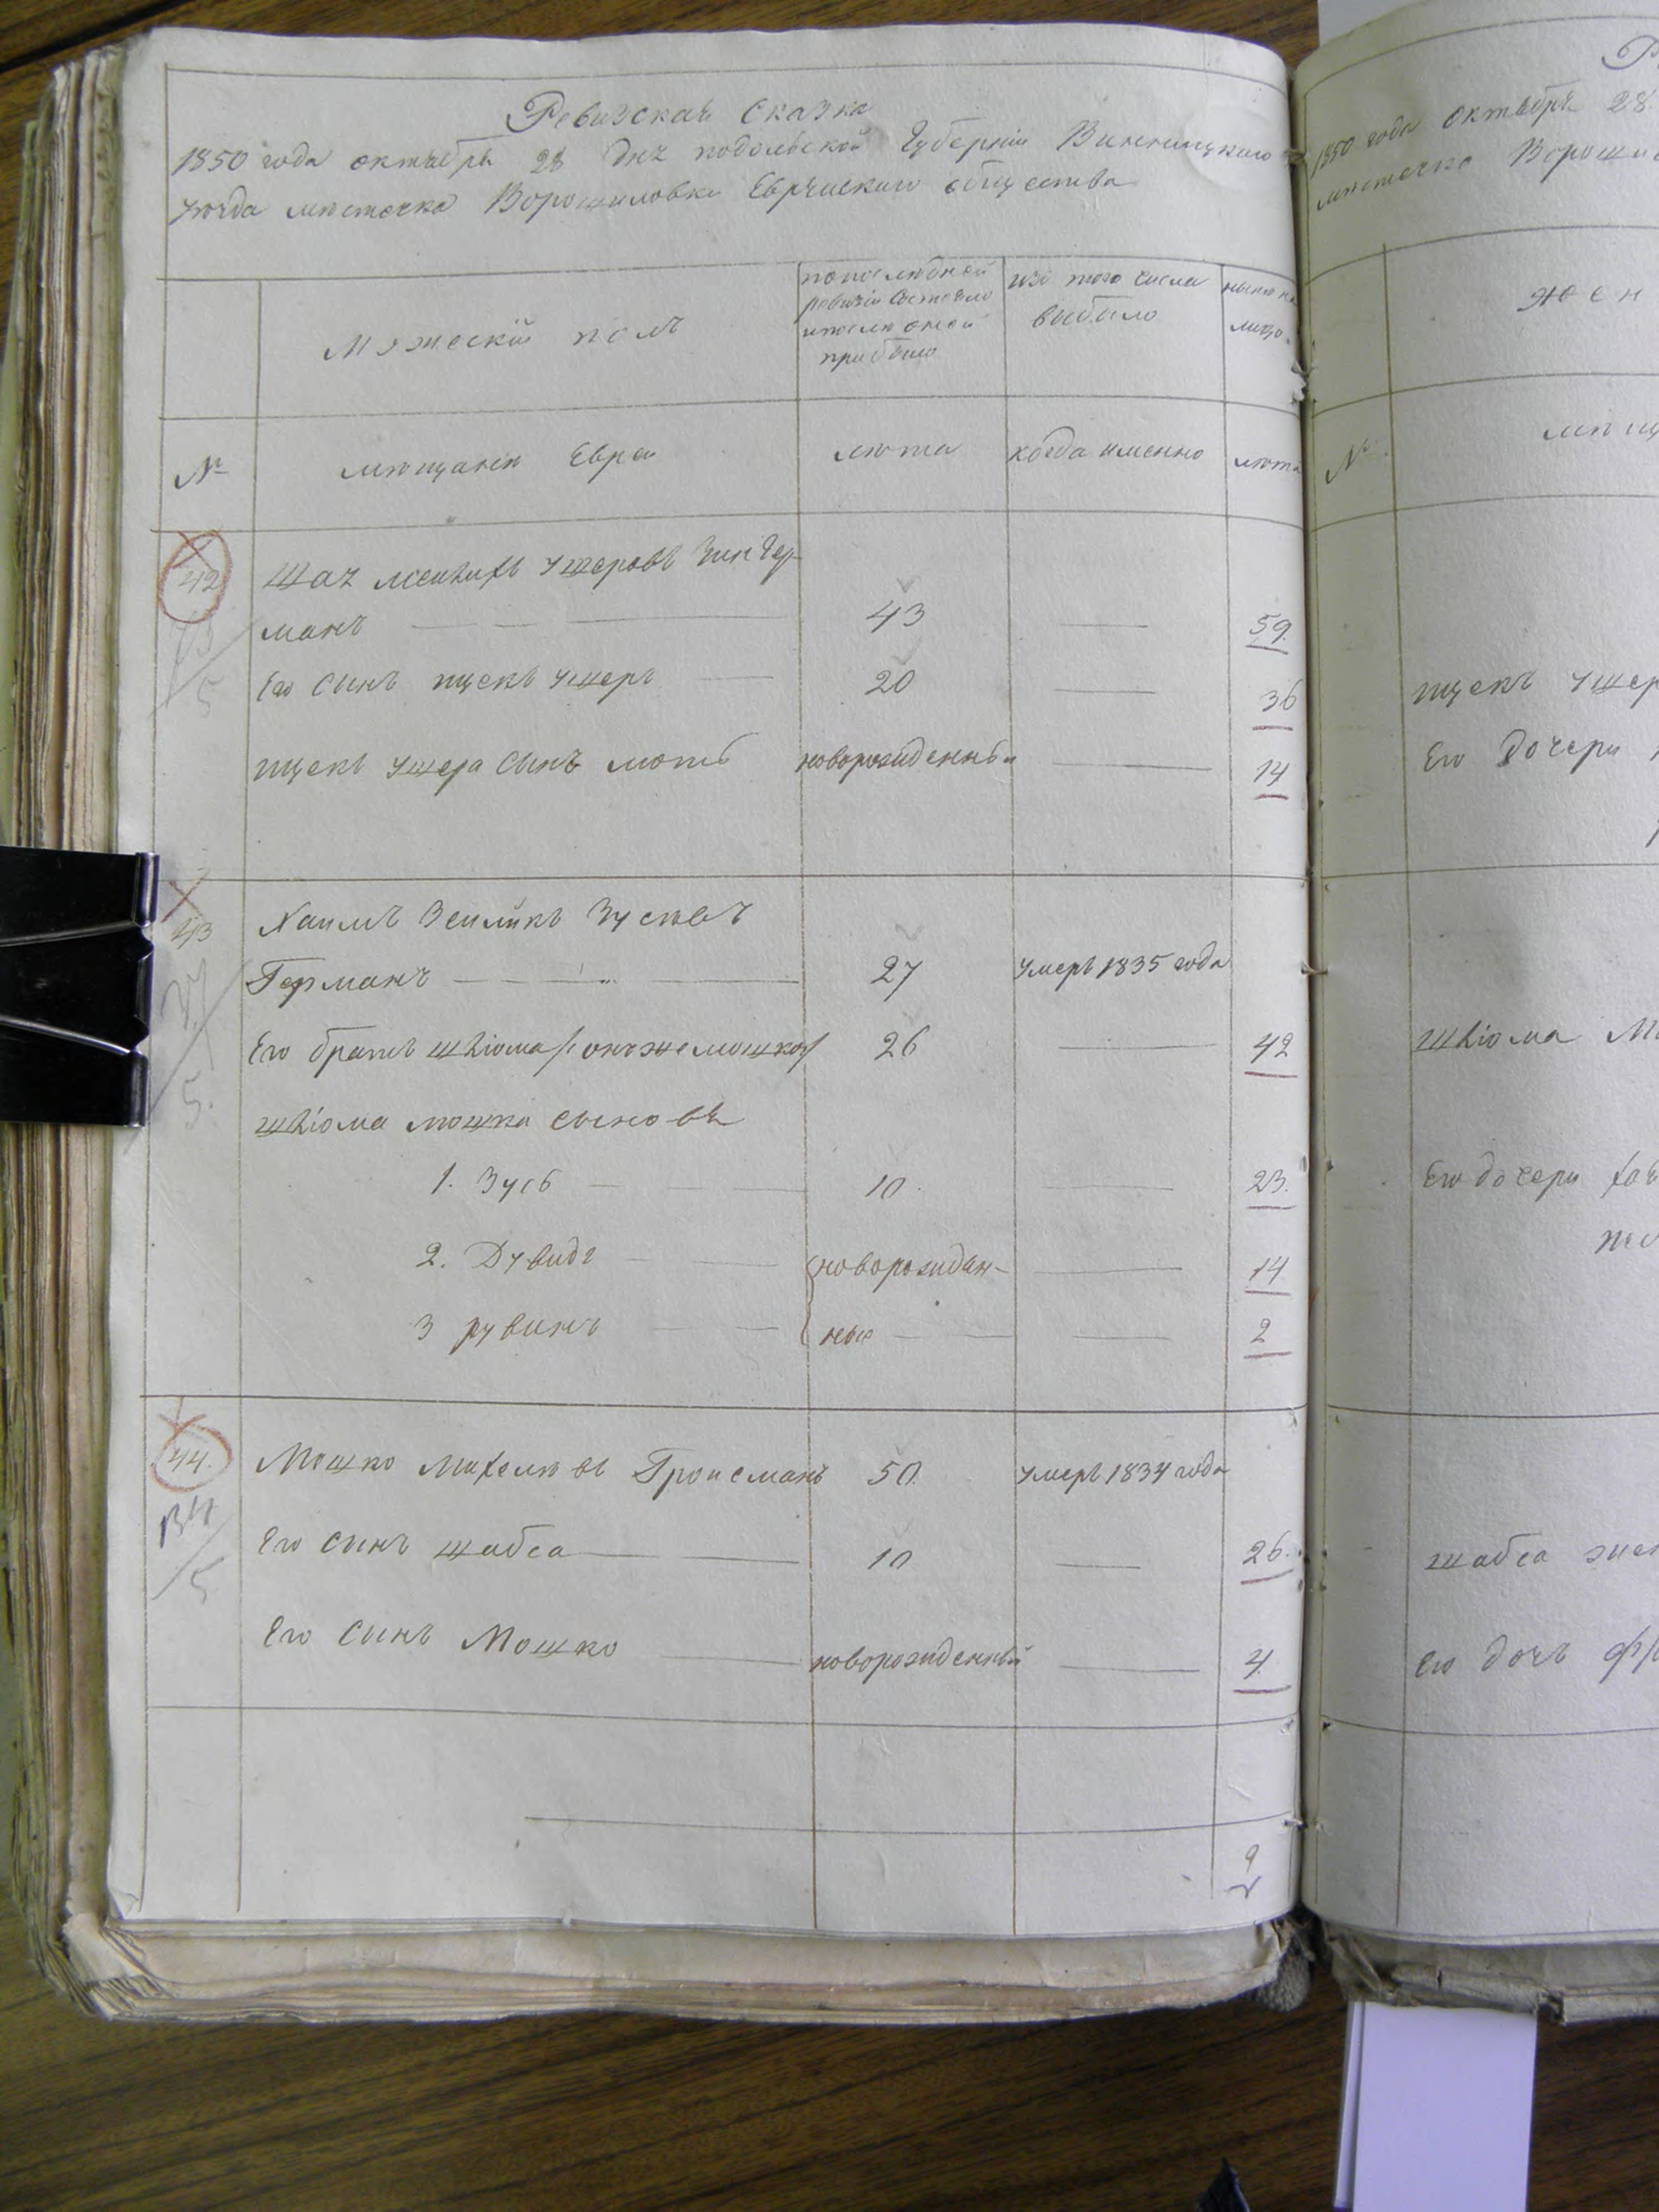 Ревизская Сказка
1850 года октября 28 дня подольской Губернии Винницкого
уѣзда мѣстечка Ворошиловки Еврейского общества
Мужеский полъ
попослѣдней ревизии состояло ипослѣ оной прибыло
изъ того числа выбыло
нынѣ на лицо
№
мѣщанѣ Евреи
лѣта
когда именно
лѣта
42
Шая Ушеровъ
манъ 43 59
Его сынъ ицекъ ушеръ 20 36
ицекъ ушера сынъ новорожденный 14
43
Хаимъ Зейликъ Зусевъ
Германъ 27 умеръ 1835 года
Его братъ шліома /: онъже мошко :/ 26 42
шліома мошка сыновья
1. Зусь 10. 23.
2. Дувидъ новорожден- 14
3 рувинъ ные 2
44.
Мошко Михелевъ Гройсманъ 50. умеръ 1834 года
5
Его сынъ шабса 10 26.
Его сынъ Мошко новорожденный 4
9
1850 года октября 28
мѣстечка
№
Жен
мѣщ
ицекъ ушер
Его дочери
шліома
Его дочери
шабса жен
Его дочь